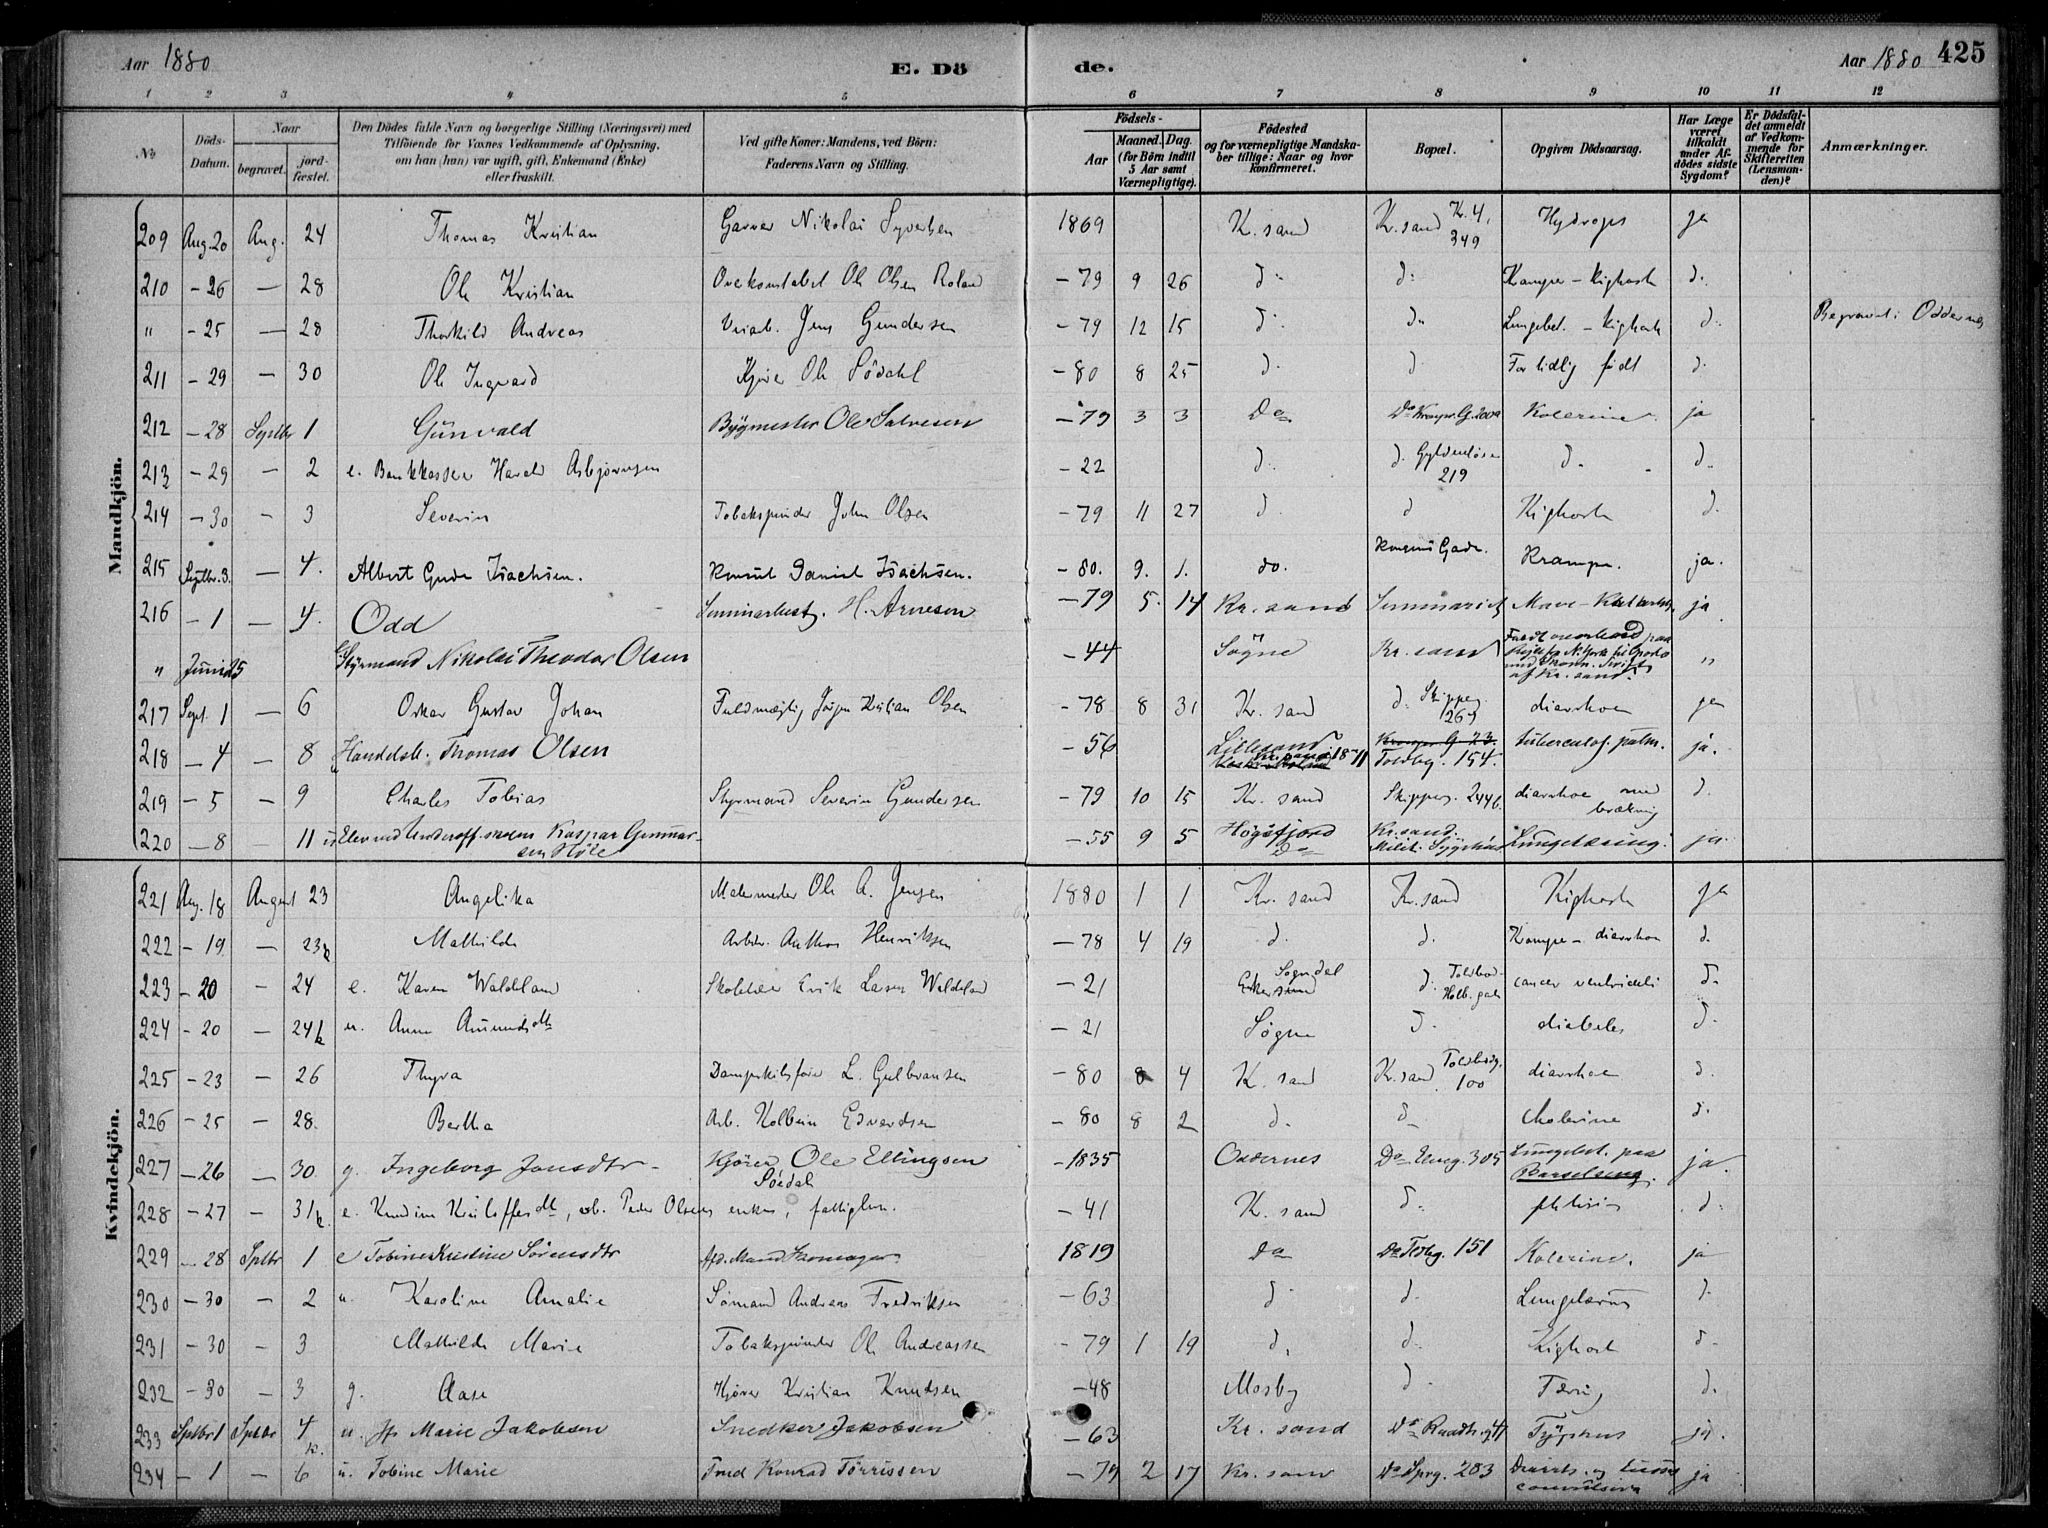 Aar 1880 E. Dö de. Aar 1880 425
1 2 3 4 5 6 7 8 9 10 11 12
№ Döds-Datum. Naar begravet. jordfæstet. Den Dödes fulde Navn og borgerlige Stilling (Næringsvei) med Tilföiende for Voxnes Vedkommende af Oplysning, om han (hun) var ugift, gift, Enkemand (Enke) eller fraskilt. Ved gifte Koner: Mandens, ved Börn: Faderens Navn og Stilling. Födsels- Aar Maaned. Dag. (for Börn indtil 5 Aar samt Værnepligtige). Födested og for værnepligtige Mandskaber tillige: Naar og hvor konfirmeret. Bopæl. Opgiven Dödsaarsag. Har Læge været tilkaldt under Afdödes sidste Sygdom? Er Dödsfaldet anmeldt af Vedkommende for Skifteretten (Lensmanden)? Anmærkninger.
Mandkjön.
209 Aug. 20 Aug. 24 Thomas Kristian Garver Nikolai Syvertsen 1869 K. sand Kr. sand Kr. 4, 349 Hydrops ja
210 - 26 - 28 Ole Kristian Overkonstabel Ole Olsen Roland - 79 9 26 d: d: Krampe - Kighoste d:
" - 25 - 28 Thorkild Andreas Jens Gundersen - 79 12 15 d: d: Lungebet. - Kighoste d: Begravet i Oddernes
211 - 29 - 30 Ole Ingvard Kjører Ole Södahl - 80 8 25 d: d For tidlig födt d:
212 - 28 Septbr 1 Gunvald Bygmester Ole Salvesen - 79 3 3 Do Do G. 200a Kolerine ja
213 - 29 - 2 e. Bankkasser Harald Asbjørnsen - 22 d: d. Gyldenløse 219 d. d.
214 - 30 - 3 Severin Tobakspinder John Olsen - 79 11 27 d. d Kighoste d.
215 Septbr. 3. - 4. Albert Gude Isachsen. Konsul Daniel Isachsen. - 80. 9. 1. do. Kongens Gade. Krampe. ja.
216 - 1 - 4. Odd H. Arnesen - 79 5. 14 Kr. sand Seminariet Mave-Katarrh ja
" Juni 25 Styrmand Nikolai Theodor Olsen - 44 Søgne Kr. sand Faldt overbord paa Reise fra N. York til Oporto med Skonn. Swift af Kr. sand. "
217 Sept. 1 - 6 Oskar Gustav Johan Fuldmægtig Jörgen Kristian Olsen - 78 8 31 Kr. sand d. Skipperg. 269 diarrhoe ja
218 - 4 - 8 Handelsb. Thomas Olsen - 56 Lillesand Kr. sand 18 71 G. 23. Toldbg. 154. tuberculos. pulm. ja.
219 - 5 - 9 Charles Tobias Styrmand Severin Gundersen - 79 10 15 Kr. sand Skipperg. 244 b. diarrhoe med brækning d.
220 - 8 - 11 u. Elev ved Underoff. skolen Kaspar Gunnarsen Høle - 55 9 5 Høgsfjord Do Kr. sand. Milit. Sygehus Lungetæring. ja.
Kvindekjön.
221 Aug. 18 August 23 Angelika Malermester Ole A. Jensen 1880 1 1 Kr. sand Kr. sand Kighoste ja
222 - 19 - 23 k Mathilde Arbdr. Anthon Henriksen - 78 4 19 d. d. Krampe - diarrhoe d.
223 - 20 - 24 e. Karen Waldeland Skolelærer Erik Larsen Waldeland - 21 Sogndal Ekersund d. Toldbod- Holb. gade cancer ventriculi d.
224 - 20 - 24 k u. Anne Amundsdtr - 21 Søgne d. diabetes d.
225 - 23 - 26 Thyra Dampskibsfører L. Gulbransen - 80 8 4 K. sand K. sand Toldbodg. 100 diarrhoe d.
226 - 25 - 28. Bertha Arb. Kolbein Edvardsen - 80 8 2 d. d. cholerine d.
227 - 26 - 30. g. Ingeborg Jonsdtr - Kjører Ole Ellingsen Søedal - 1835 Oddernes Do Elveg. 305 Lungebet. paa Barselseng. ja.
228 - 27 - 31 k. e. Kristoffersdtr, arb. Peder Olsens enke, fattiglem. - 41 K. sand d. phthisis d.
229 - 28 Sptbr 1 e Tobine Kristine Sørensdtr Afd. Mand Skomager 1819 Do Do Toldbg. 151 Kolerine. ja
230 - 30 - 2 u. Karoline Amalie Sømand Andreas Fredriksen - 63 d d. Lungetæring d.
231 - 30 - 3 Mathilde Marie Tobakspinder Ole Andreassen - 79 1 19 d. d. Kighoste d.
232 - 30 - 3 g. Aase Kjører Kristian Knudsen - 48 Mosby d. Tæring d.
233 Sptbr 1 Sptbr 4 k. u. Jfr Marie Jakobsen Snedker Jakobsen - 63 Kr. sand Do Raadhsg. Typhus ja.
234 - 1 - 6 u. Tobine Marie Konrad Tørrissen - 79 2 17 Kr. sand Do 283 og tussis convulsiva ja